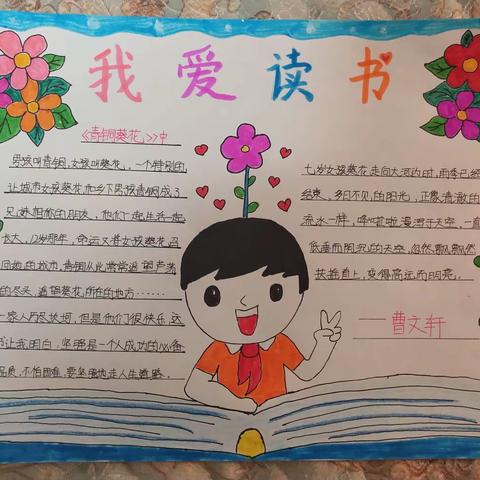 我爱读书
《青铜葵花》中
男孩叫青铜,女孩叫葵花,一个特别的
让城市女孩葵花和乡下男孩青铜成了
兄妹相称的朋友,他们一起生活一起
长大,12岁那年,命运又将女孩葵花召
回她的城市,青铜从此常常遥望芦荡
的尽头,遥望葵花所在的地方……
一家人历尽坎坷,但是他们很快乐,这
书让我明白,坚强是一个人成功的必备
品质,不怕困难,要坚强地走人生道路。
七岁女孩葵花走向大河边时,雨季已经
结束,多日不见的阳光,正像清澈的
流水一样,哗啦啦漫泻于天空,一直
低垂而阴沉的天空,忽然飘飘然
扶摇直上,变得高远而明亮。
——曹文轩